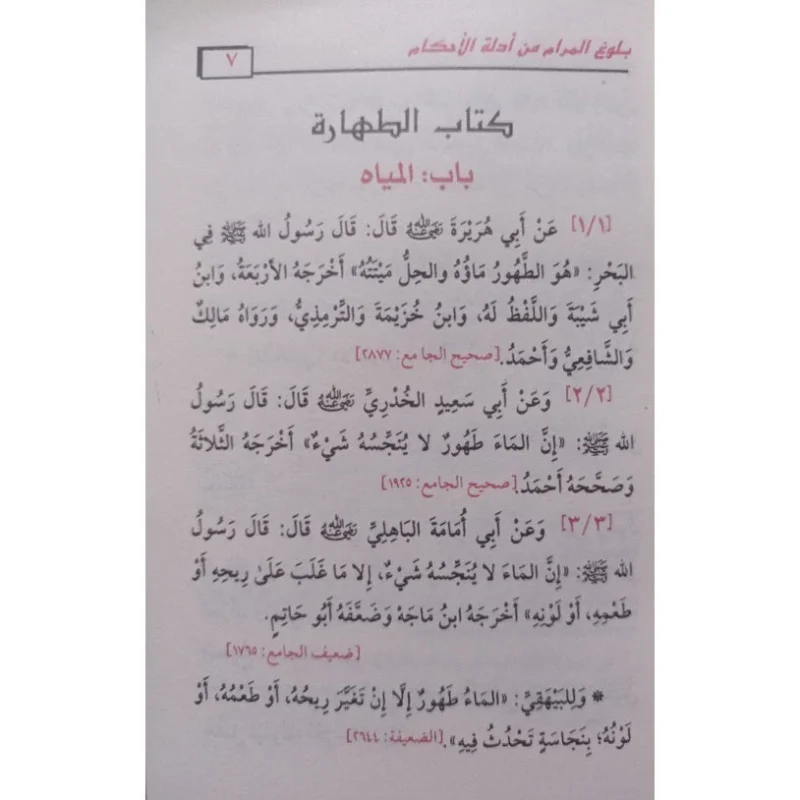 بلوغ المرام من أدلة الأحكام
٧
كتاب الطهارة
باب: المياه
[١/١] عَنْ أَبِي هُرَيْرَةَ رَضِيَ اللَّهُ عَنْهُ قَالَ: قَالَ رَسُولُ الله ﷺ فِي
البَحْرِ: «هُوَ الطَّهُورُ مَاؤُهُ والحِلُّ مَيْتَتُهُ» أَخْرَجَهُ الأَرْبَعَةُ، وَابنُ
أَبِي شَيْبَةَ وَاللَّفْظُ لَهُ، وَابنُ خُزَيْمَةَ وَالتِّرْمِذِيُّ، وَرَوَاهُ مَالِكٌ
وَالشَّافِعِيُّ وَأَحْمَدُ.[صحيح الجامع: ٢٨٧٧]
[٢/٢] وَعَنْ أَبِي سَعِيدٍ الخُدْرِيِّ رَضِيَ اللَّهُ عَنْهُ قَالَ: قَالَ رَسُولُ
الله ﷺ: «إِنَّ المَاءَ طَهُورٌ لا يُنَجِّسُهُ شَيْءٌ» أَخْرَجَهُ الثَّلاثَةُ
وَصَحَّحَهُ أَحْمَدُ.[صحيح الجامع: ١٩٢٥]
[٣/٣] وَعَنْ أَبِي أُمَامَةَ البَاهِلِيِّ رَضِيَ اللَّهُ عَنْهُ قَالَ: قَالَ رَسُولُ
الله ﷺ: «إِنَّ المَاءَ لا يُنَجِّسُهُ شَيْءٌ، إِلا مَا غَلَبَ عَلَىٰ رِيحِهِ أَوْ
طَعْمِهِ، أَوْ لَوْنِهِ» أَخْرَجَهُ ابنُ مَاجَهْ وَضَعَّفَهُ أَبُو حَاتِمٍ.
[ضعيف الجامع: ١٧٦٥]
* وَلِلبَيْهَقِيِّ: «المَاءُ طَهُورٌ إِلَّا إِنْ تَغَيَّرَ رِيحُهُ، أَوْ طَعْمُهُ، أَوْ
لَوْنُهُ؛ بِنَجَاسَةٍ تَحْدُثُ فِيهِ».[الضعيفة: ٢٦٤٤]